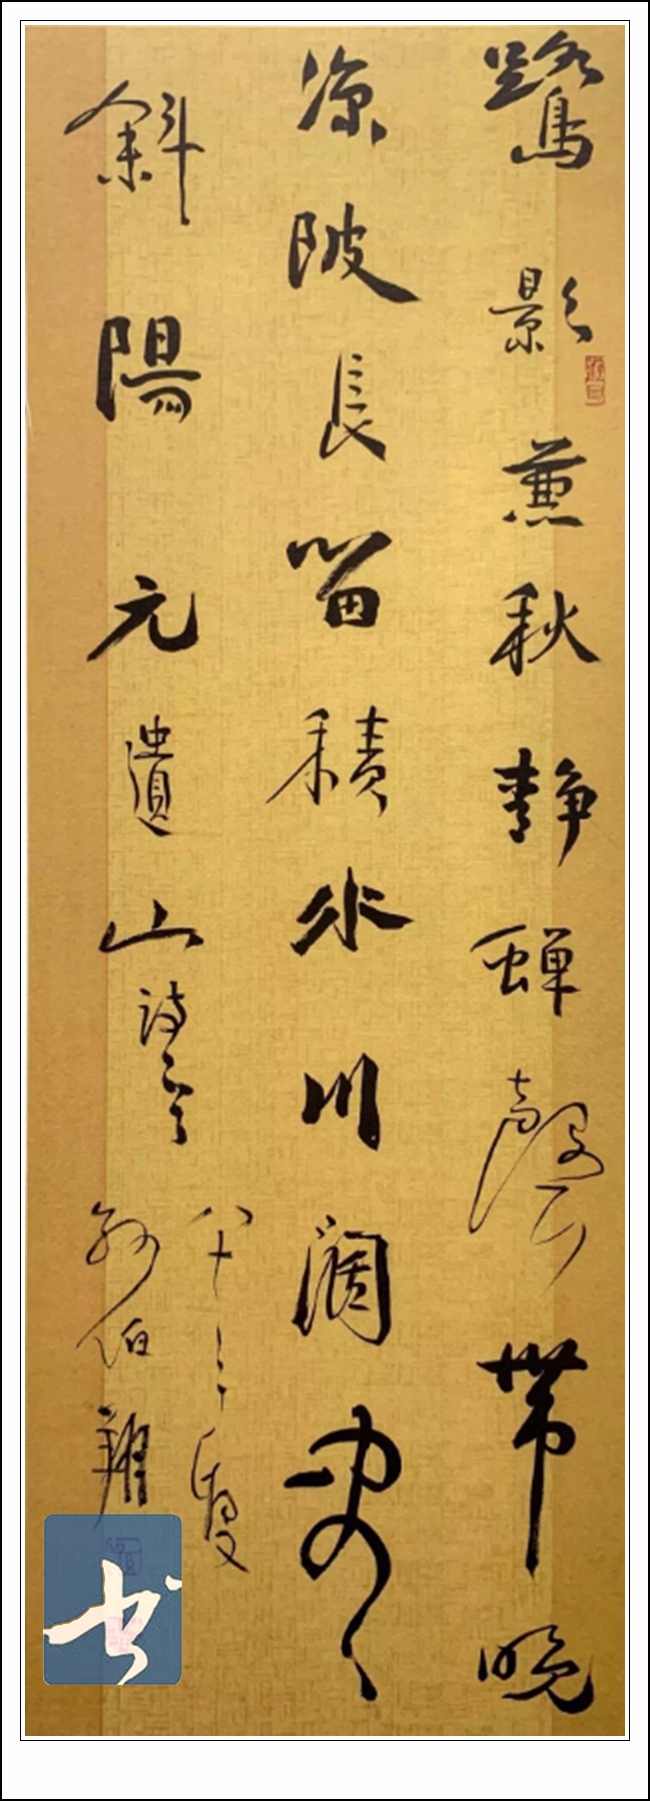 鷺影兼秋静蟬聲帶晚
凉陂長留積水川闊盡
斜陽元遺山詩
八十
孙伯翔
书